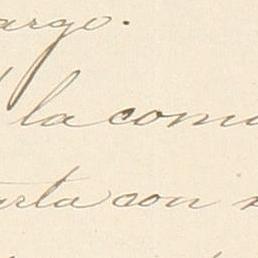 argo.
la comu
arta con